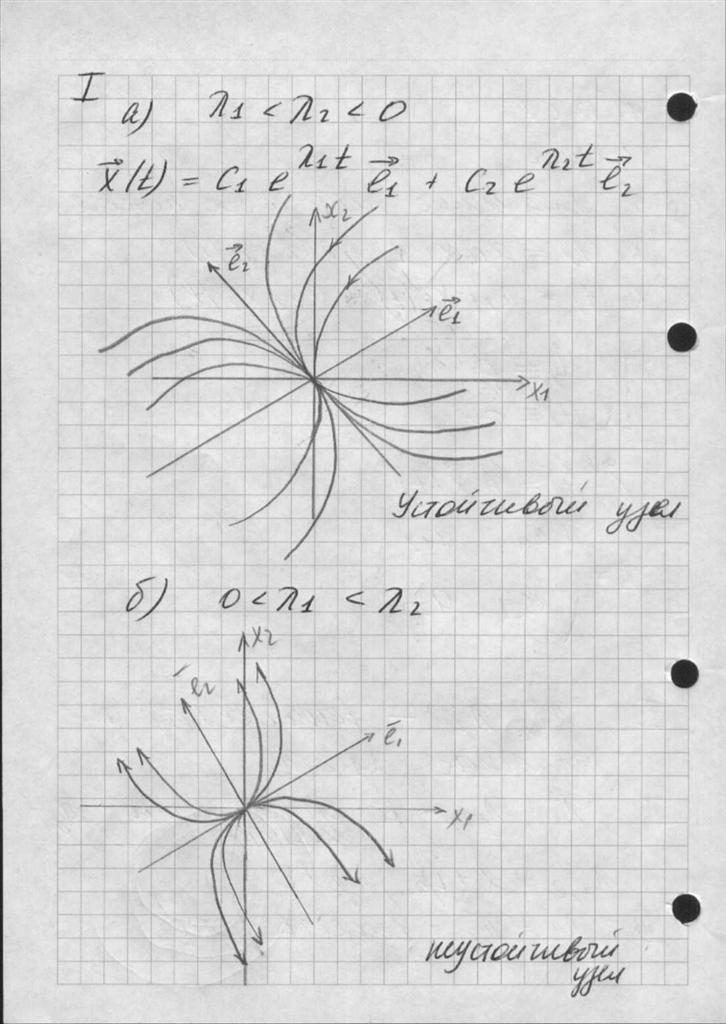 I
а) λ1 < λ2 < 0
x⃗(t) = C1 e^λ1t e⃗1 + C2 e^λ2t e⃗2
x2
e⃗2
e⃗1
x1
Устойчивый узел
б) 0 < λ1 < λ2
x2
e̅2
e̅1
x1
неустойчивый
узел